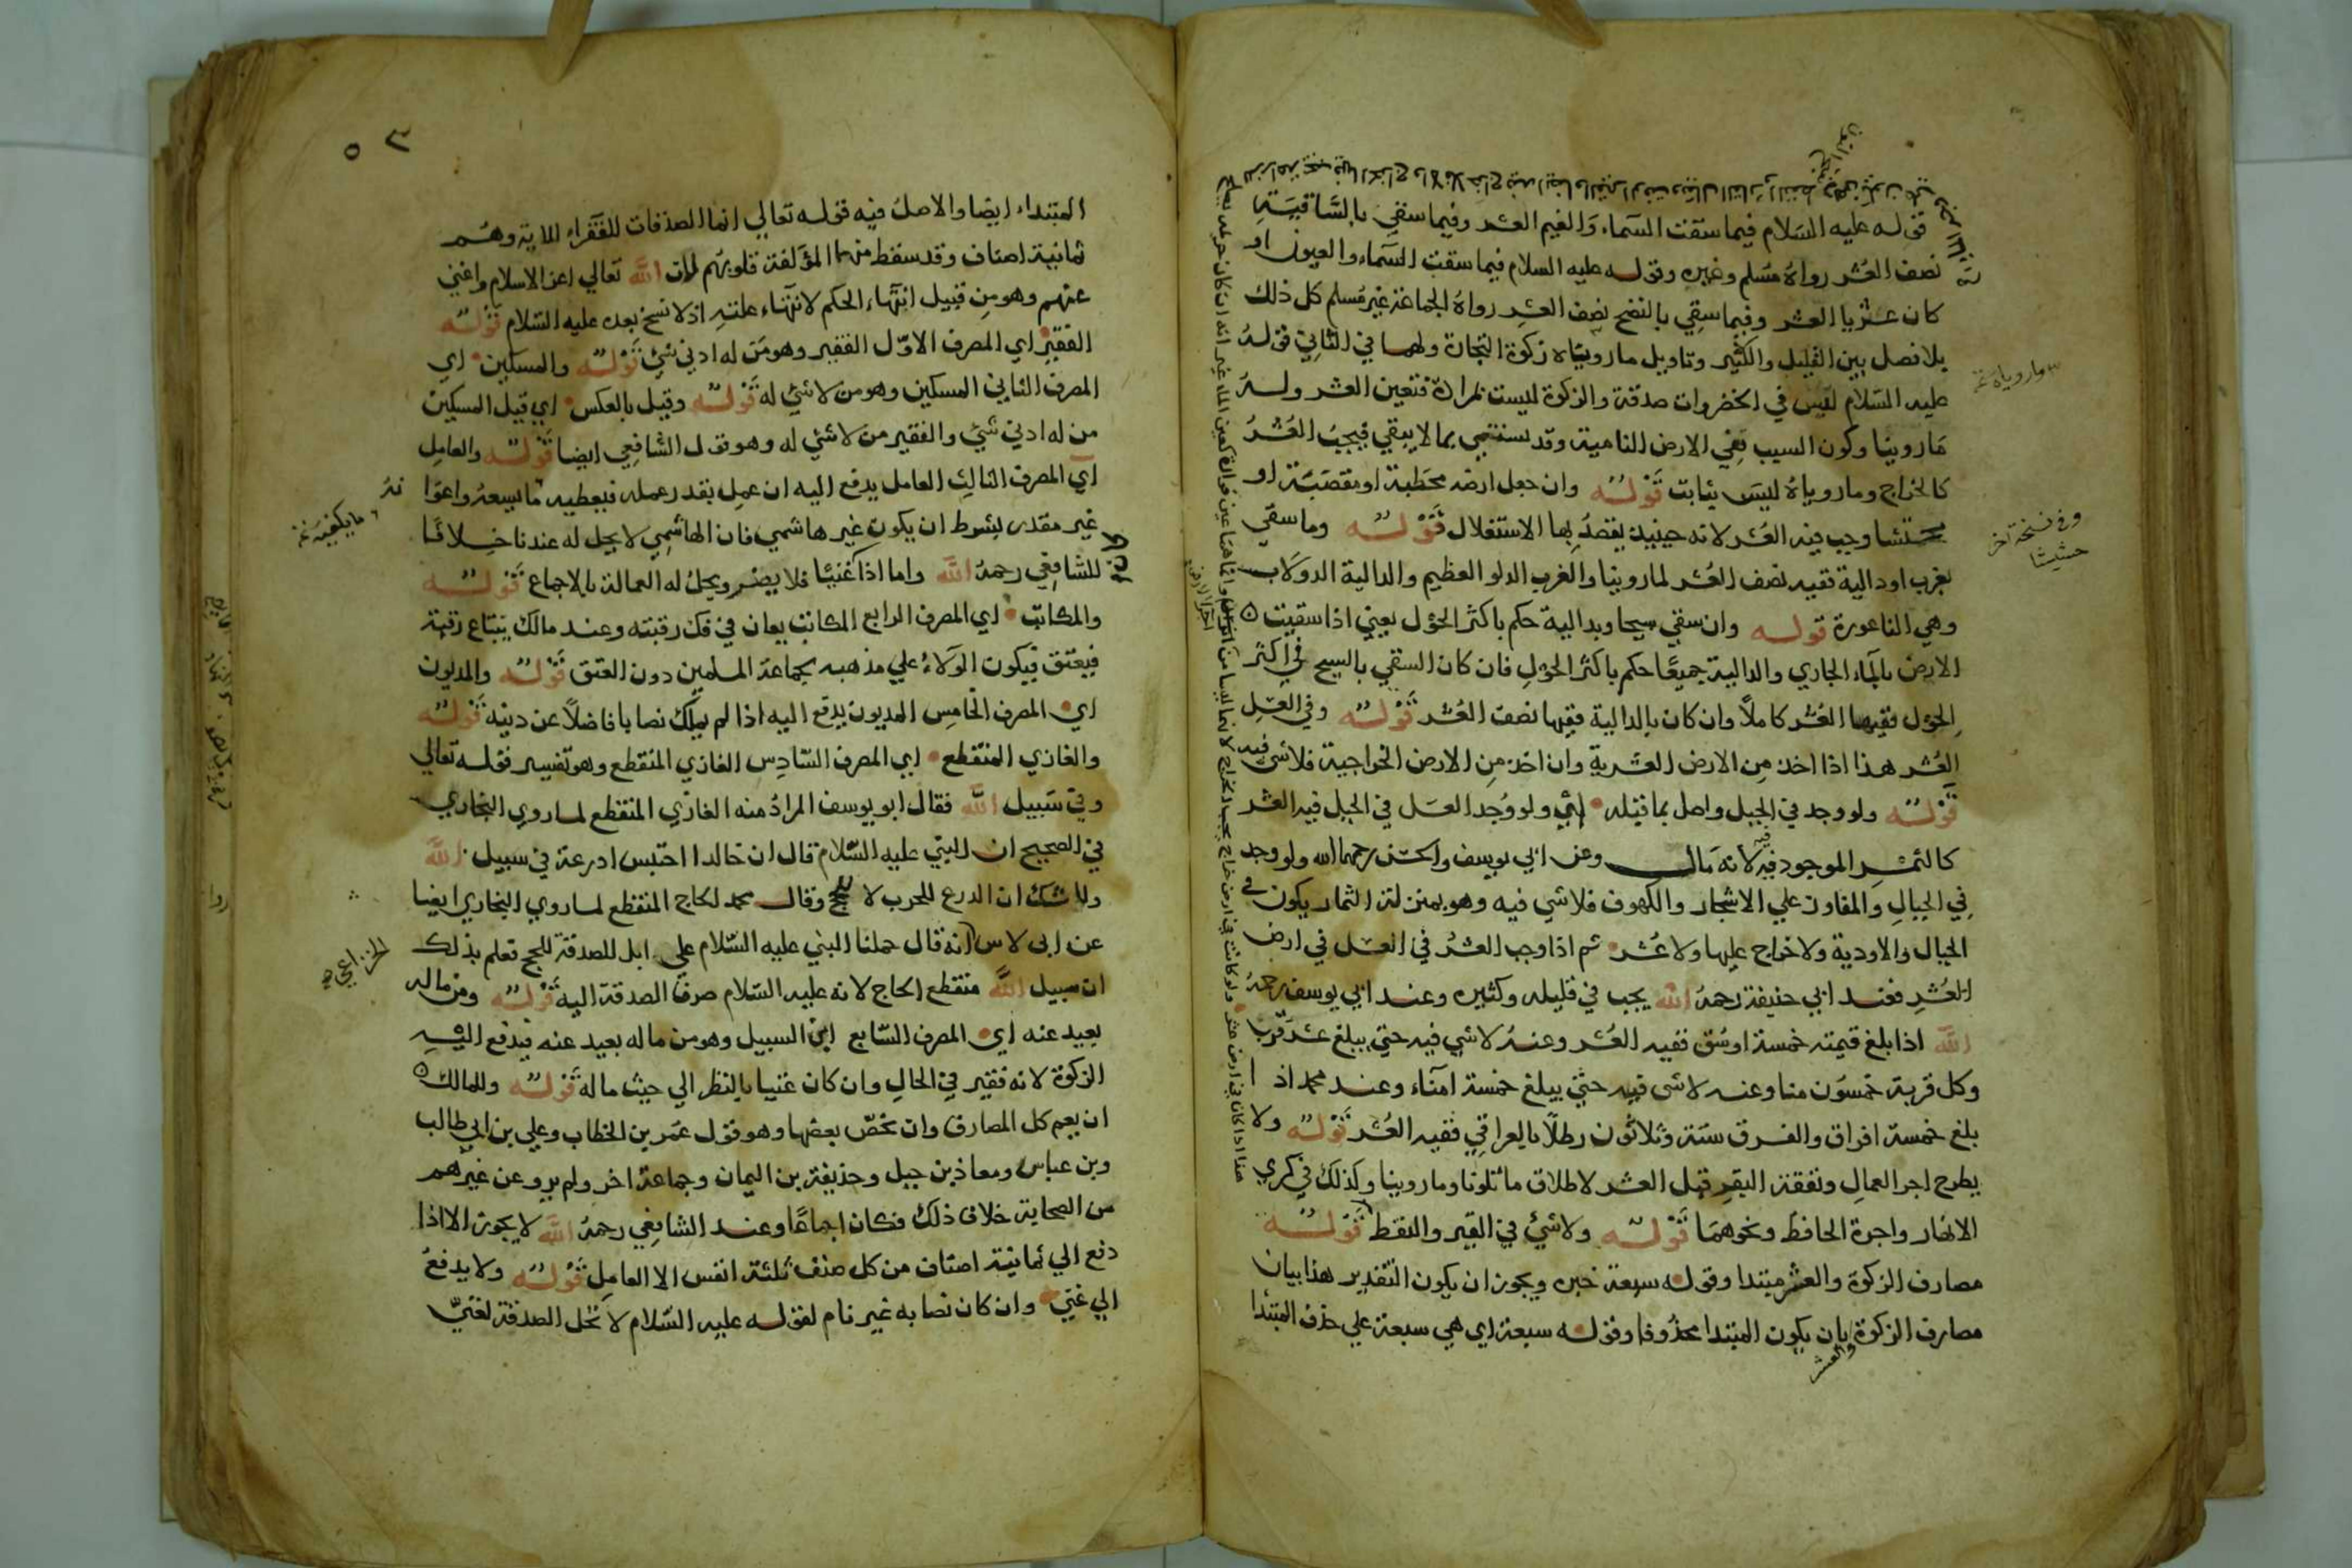 قوله عليه السلام فيما سقت السماء والغيم العشر وفيما سقي بالساقية
نصف العشر رواه مسلم وغيره وقوله عليه السلام فيما سقت السماء والعيون او
كان عثريا العشر وفيما سقي بالنضح نصف العشر رواه الجماعة غير مسلم كل ذلك
بلا فصل بين القليل والكثير وتاويل ما روياه زكوة التجارة ولهما في الثاني قوله
عليه السلام ليس في الخضروات صدقة والزكوة ليست بمرادة فتعين العشر وله
ما روينا وكون السبب هي الارض النامية وقد يستنمي بما لا يبقي فيجب العشر
كالخراج وما روياه ليس بثابت قوله وان جعل ارضه محطبة او مقصبة او
وجب فيه العشر لانه حينيذ يقصد بها الاستغلال قوله وما سقي
بغرب او دالية ففيه نصف العشر لما روينا والغرب الدلو العظيم والدالية الدولاب
وهي الناعورة قوله وان سقي سيحا وبدالية حكم باكثر الحول يعني اذا سقيت
الارض بالماء الجاري والدالية جميعا حكم باكثر الحول فان كان السقي بالسيح في اكثر
الحول ففيها العشر كاملا وان كان بالدالية ففيها نصف العشر قوله وفي العسل
العشر هذا اذا اخذ من الارض العشرية وان اخذ من الارض الخراجية فلا شي فيه
قوله ولو وجد في الجبل واصل بما قبله اي ولو وجد العسل في الجبل فيه العشر
كالثمر الموجود فيه لانه مال وعن ابي يوسف والحسن رحمهما الله ولو وجد
في الجبال والمفاوز علي الاشجار والكهوف فلا شي فيه وهو بمنزلة الثمار يكون في
الجبال والاودية ولا خراج عليها ولا عشر ثم اذا وجب العشر في العسل في ارض
العشر فعند ابي حنيفة رحمه الله يجب في قليله وكثيره وعند ابي يوسف رحمه
الله اذا بلغ قيمته خمسة اوسق ففيه العشر وعنه لا شي فيه حتي يبلغ عشر قرب
وكل قربة خمسون منا وعنه لا شي فيه حتي يبلغ خمسة امناء وعند محمد اذا
بلغ خمسة افراق والفرق ستة وثلاثون رطلا بالعراقي ففيه العشر قوله ولا
يطرح اجر العمال ونفقة البقر قبل العشر لاطلاق ما تلونا وما روينا وكذلك في كري
الانهار واجرة الحافظ ونحوهما قوله ولا شي في القير والنفط قوله
مصارف الزكوة والعشر مبتدا وقوله سبعة خبره ويجوز ان يكون التقدير هذا بيان
مصارف الزكوة بان يكون المبتدا محذوفا وقوله سبعة اي هي سبعة علي حذف المبتدا
والعشر
وفي نسخة آخر
حشيشا
المبتداء ايضا والاصل فيه قوله تعالي انما الصدقات للفقراء الاية وهم
ثمانية اصناف وقد سقط منها المؤلفة قلوبهم لان الله تعالي اعز الاسلام واغني
عنهم وهو من قبيل انتهاء الحكم لانتهاء علته اذ لا نسخ بعده عليه السلام قوله
الفقير اي المصرف الاول الفقير وهو من له ادني شي قوله والمسكين اي
المصرف الثاني المسكين وهو من لا شي له قوله وقيل بالعكس اي قيل المسكين
من له ادني شي والفقير من لا شي له وهو قول الشافعي ايضا قوله والعامل
اي المصرف الثالث العامل يدفع اليه ان عمل بقدر عمله فيعطيه ما يسعه واعوا
غير مقدر بشرط ان يكون غير هاشمي فان الهاشمي لا يحل له عندنا خلافا
للشافعي رحمه الله واما اذا كان غنيا فلا يضر ويحل له العمالة بالاجماع قوله
والمكاتب اي المصرف الرابع المكاتب يعان في فك رقبته وعند مالك يبتاع رقبة
فيعتق فيكون الولاء علي مذهبه لجماعة المسلمين دون العتق قوله والمديون
اي المصرف الخامس المديون يدفع اليه اذا لم يملك نصابا فاضلا عن دينه قوله
والغازي المنقطع اي المصرف السادس الغازي المنقطع وهو تفسير قوله تعالي
وفي سبيل الله فقال ابو يوسف المراد منه الغازي المنقطع لما روي البخاري
في الصحيح ان النبي عليه السلام قال ان خالدا احتبس ادرعه في سبيل الله
ولا شك ان الدرع للحرب لا للحج وقال محمد الحاج المنقطع لما روي البخاري ايضا
عن ابي لاس انه قال حملنا النبي عليه السلام علي ابل للصدقة للحج فعلم بذلك
ان سبيل الله منقطع الحاج لانه عليه السلام صرف الصدقة اليه قوله ومن ماله
بعيد عنه اي المصرف السابع ابن السبيل وهو من ماله بعيد عنه فيدفع اليه
الزكوة لانه فقير في الحال وان كان غنيا بالنظر الي حيث ماله قوله وللمالك
ان يعم كل المصارف وان يخص بعضها وهو قول عمر بن الخطاب وعلي بن ابي طالب
وبن عباس ومعاذ بن جبل وحذيفة بن اليمان وجماعة اخر ولم يرو عن غيرهم
من الصحابة خلاف ذلك فكان اجماعا وعند الشافعي رحمه الله لا يجوز الا اذا
دفع الي ثمانية اصناف من كل صنف ثلثة انفس الا العامل قوله ولا يدفع
الي غني وان كان نصابه غير نام لقوله عليه السلام لا تحل الصدقة لغني
الخزاعي